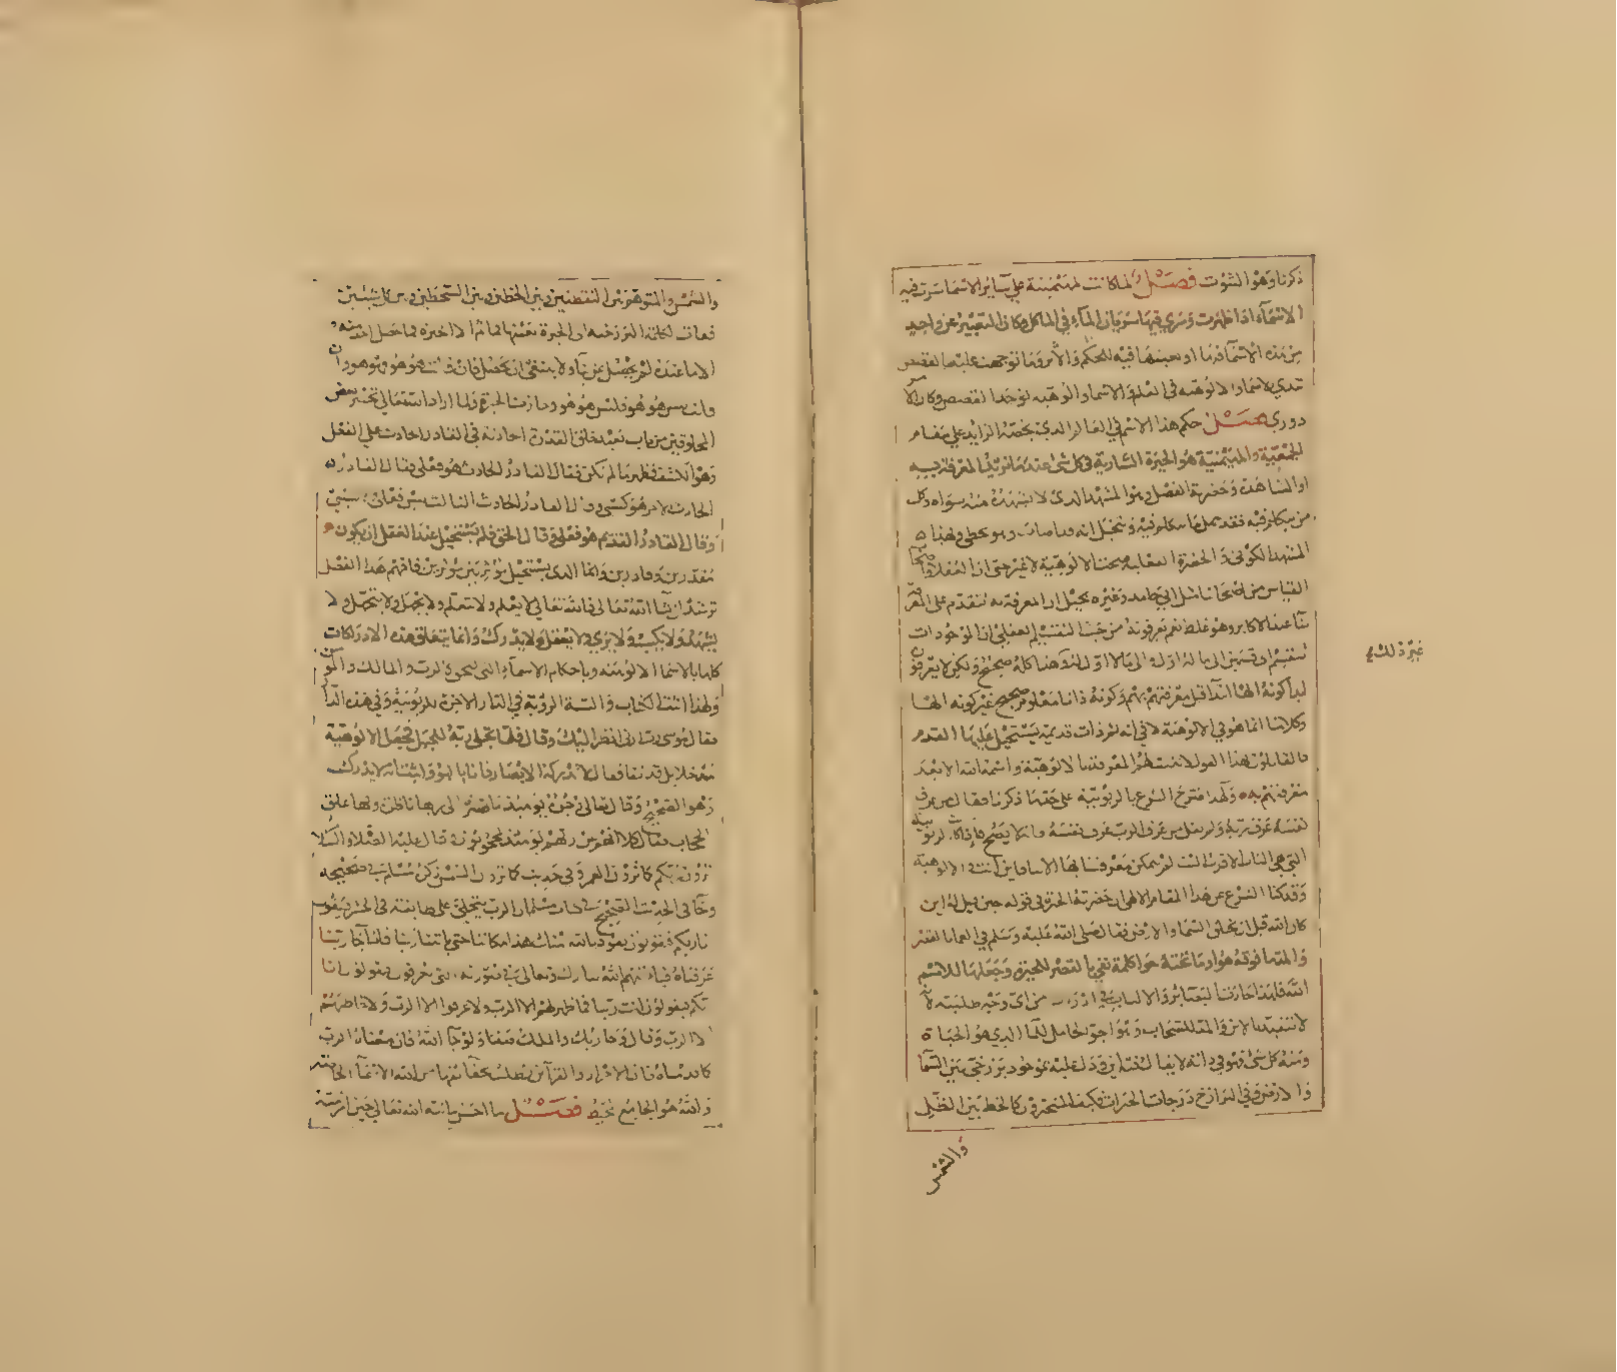 ذكرنا وهو الثبوت فصل لما كانت مهيمنة على سائر الاسما سرت فيه
الاسماء اذا ظهرت وسرى فيها سريان الماء في الماء وكان التعيين عن واحد
من هذه الاسماء فيه للحكم والاثر وما توجهت عليها القصص
تبدي الاسما والالوهية في العلم والاسما والالوهية توجد القصص وكان الا
دوري فصل حكم هذا الاسم في العالم الذي يخصه الزايد على مقام
الجمعية والمهيمنية هو الحيرة السارية في كل شي عندما نريد المعرفة به
او المشاهدة وحضرة الفعل وهو المشهد الذي لا يشهد منه سواه وكل
من يتكلم فيه فقد جهل ما يتكلم فيه ويتخيل انه قد اصاب وهو مخطي وبهذا
المشهد الكوني والحضرة الفعلية صحت الالوهية لا غير حتى ان العقلا واصحاب
القياس من اصحابنا مثل ابي حامد وغيره يخيل ان المعرفة به تتقدم على المعرفة
بنا عند الاكابر وهو غلط نعم يعرفونه من حيث التقسيم العقلي ان الموجودات
تنقسم الى قسمين الى ما له اول والى ما لا اول له وهذا كله صحيح ولكن لا يعرفون
ابدا كونه الها ابتدا قبل معرفتهم بهم وكونه ذاتا معلوم صحيح غير كونه الها
وكلامنا انما هو في الالوهية لا في انه ثم ذات قديمة يستحيل عليها العدم
فالقايلون بهذا القول لا تثبت لهم المعرفة بالالوهية واسمه الله الا بعد
معرفتهم به ولهذا صرح الشرع بالربوبية على حد ما ذكرنا فقال من عرف
نفسه عرف ربه ولم يقل من عرف الرب عرف نفسه فانه لا يصح فاذا كانت الربوبية
التي هي الباب الاقرب الينا لم يمكن معرفتنا بها الا بنا فاين انت والالوهية
وقد كنا الشرع عن هذا المقام الالهي ان حضرته الحيرة في قوله حين قيل له اين
كان الله قبل ان يخلق السما والارض فقال صلى الله عليه وسلم في العما بالقصر
والمد ما فوقه هواء وما تحته هواء كلمة نفي بالقصر للحيرة وجعلها للاسم
الله فلهذا حارت البصائر والالباب في ادراكه من اي وجه طلبته لانه
لا يتقيد بالاين والمد للسحاب وهو الجو الحامل للماء الذي هو الحياة
ومنه كل شي فهو في ذاته لا يقال فيه اين ودل عليه بموجود برزخي بين السما
والارض وفي البرازخ درجات الحيرات فكيف المتحيرون كالخط بين الظل
والشمس
غير ذلك
والشمس والمتوهم بين النقطتين وبين الخطين وبين السطحين وبين كل شيئين
فعادت الكلمة البرزخية الى الحيرة بعينها فما ثم الا الحيرة فما حصل احد منه
الا ما عنده لم يحصل غريبا ولا ينبغي ان يحصل فان قلت هو هو فهو هو وان
قلت ليس هو هو فليس هو هو وحارت الحيرة ولما اراد الله تعالى تحير بعض
المخلوقين من باب بعيد خلق القدرة الحادثة في القادر الحادث على الفعل
وهو الكسب فظهر ما لم يكن فقال القادر الحادث هو فعلي وقال القادر
الحادث الاخر هو كسبي وقال القادر الحادث الثالث ليس فعلي ولا كسبي
وقال القادر القديم هو فعلي وقال الحق فلم يستحيل عند العقل ان يكون
مقدور بين قادرين وانما الذي يستحيل مؤثر بين مؤثرين فافهم هذا الفصل
ترشد ان شاء الله تعالى فالله تعالى لا يعلم ولا يتعلم ولا يجهل ولا يتجهل ولا
يشهد ولا يكشف ولا يرى ولا يعقل ولا يدرك وانما يتعلق هذه الادراكات
كلها بالاسما الالوهية وباحكام الاسماء التي يستحق كالرب والمالك والمؤمن
ولهذا اثبت الكتاب والسنة الرؤية في الدار الاخرة للربوبية وفي هذه الدار
فقال موسى رب ارني انظر اليك وقال فلما تجلى ربه للجبل فجعل الالوهية
مدخلا بل قد نفا فقال لا تدركه الابصار فاتا بالهو واثبت انه لا يدرك
وهو الصحيح وقال تعالى وجوه يومئذ ناضرة الى ربها ناظرة وبها علق
الحجاب فقال كلا انهم عن ربهم يومئذ لمحجوبون وقال عليه الصلاة والسلام
ترون ربكم كما ترون القمر وفي حديث كما ترون الشمس ذكره مسلم في صحيحه
وجا في الحديث الصحيح في كتاب مسلم ان الرب يتجلى على طايفة في الحشر فيقول
انا ربكم فيقولون نعوذ بالله منك هذا مكاننا حتى ياتينا ربنا فاذا جا ربنا
عرفناه فياتيهم الله تبارك وتعالى في صورته التي يعرفون فيقول انا
ربكم فيقولون انت ربنا فما ظهر لهم الا الرب ولا عرفوا الا الرب ولا خاطبهم
الا الرب وقال وجا ربك والملك صفا ولو جا الله فان معناه الرب
كما قدمناه فان الاحوال والقرائن تطلب بحقائقها من الله الاسماء الخاصة
والله هو الجامع المحيط فصل ما احسن ما نبه الله تعالى حين امر نبيه